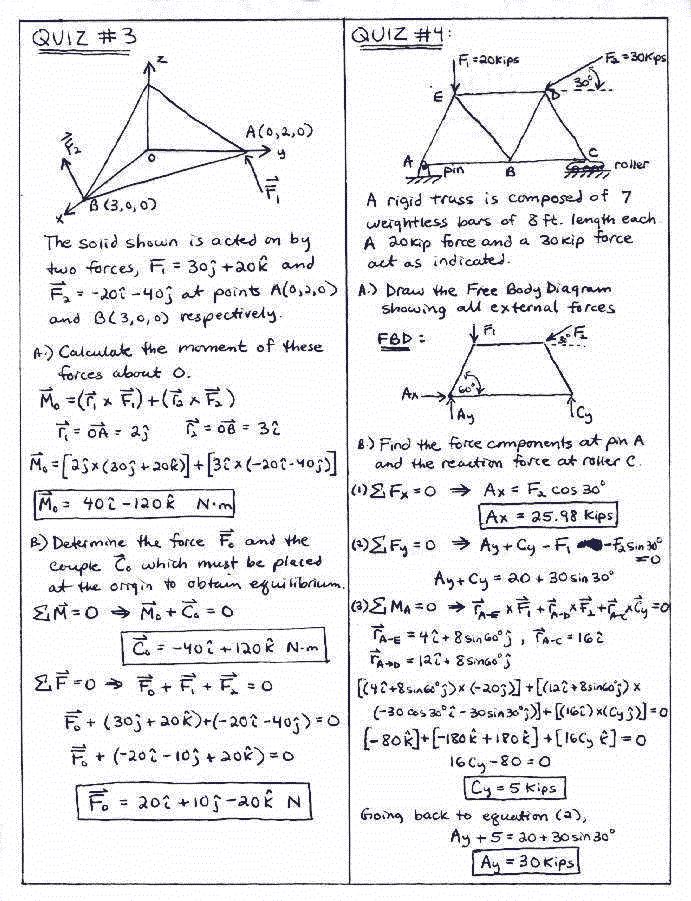 QUIZ #3
z
A(0,2,0)
y
O
F₂
F₁
B(3,0,0)
x
The solid shown is acted on by
two forces, F₁ = 30ĵ+20k̂ and
F₂ = -20î-40ĵ at points A(0,2,0)
and B(3,0,0) respectively.
A.) Calculate the moment of these
forces about O.
M₀ = (r₁ x F₁) + (r₂ x F₂)
r₁ = OA = 2ĵ r₂ = OB = 3î
M₀ = [2ĵ x (30ĵ+20k̂)] + [3î x (-20î-40ĵ)]
M₀ = 40î -120k̂ N·m
B.) Determine the force F₀ and the
couple C₀ which must be placed
at the origin to obtain equilibrium.
ΣM = 0 ⇒ M₀ + C₀ = 0
C₀ = -40î + 120k̂ N·m
ΣF = 0 ⇒ F₀ + F₁ + F₂ = 0
F₀ + (30ĵ + 20k̂) + (-20î -40ĵ) = 0
F₀ + (-20î -10ĵ + 20k̂) = 0
F₀ = 20î + 10ĵ - 20k̂ N
QUIZ #4:
F₁ = 20Kips
F₂ = 30Kips
30°
E
D
A
pin
B
C
roller
A rigid truss is composed of 7
weightless bars of 8 ft. length each
A 20Kip force and a 30Kip force
act as indicated.
A.) Draw the Free Body Diagram
showing all external forces
FBD:
F₁
F₂
30°
Ax
60°
Ay
Cy
B.) Find the force components at pin A
and the reaction force at roller C.
(1) ΣFx = 0 ⇒ Ax = F₂ cos 30°
Ax = 25.98 Kips
(2) ΣFy = 0 ⇒ Ay + Cy - F₁ -F₂ sin 30°
=0
Ay + Cy = 20 + 30 sin 30°
(3) ΣMA = 0 ⇒ rA-E x F₁ + rA-D x F₂ + rA-C x Cy = 0
rA-E = 4î + 8 sin 60° ĵ , rA-C = 16î
rA→D = 12î + 8 sin 60° ĵ
[(4î + 8 sin 60° ĵ) x (-20ĵ)] + [(12î + 8 sin 60° ĵ) x
(-30 cos 30° î - 30 sin 30° ĵ)] + [(16î) x (Cy ĵ)] = 0
[-80k̂] + [-180k̂ + 180k̂] + [16Cy k̂] = 0
16Cy - 80 = 0
Cy = 5 Kips
Going back to equation (2),
Ay + 5 = 20 + 30 sin 30°
Ay = 30 Kips